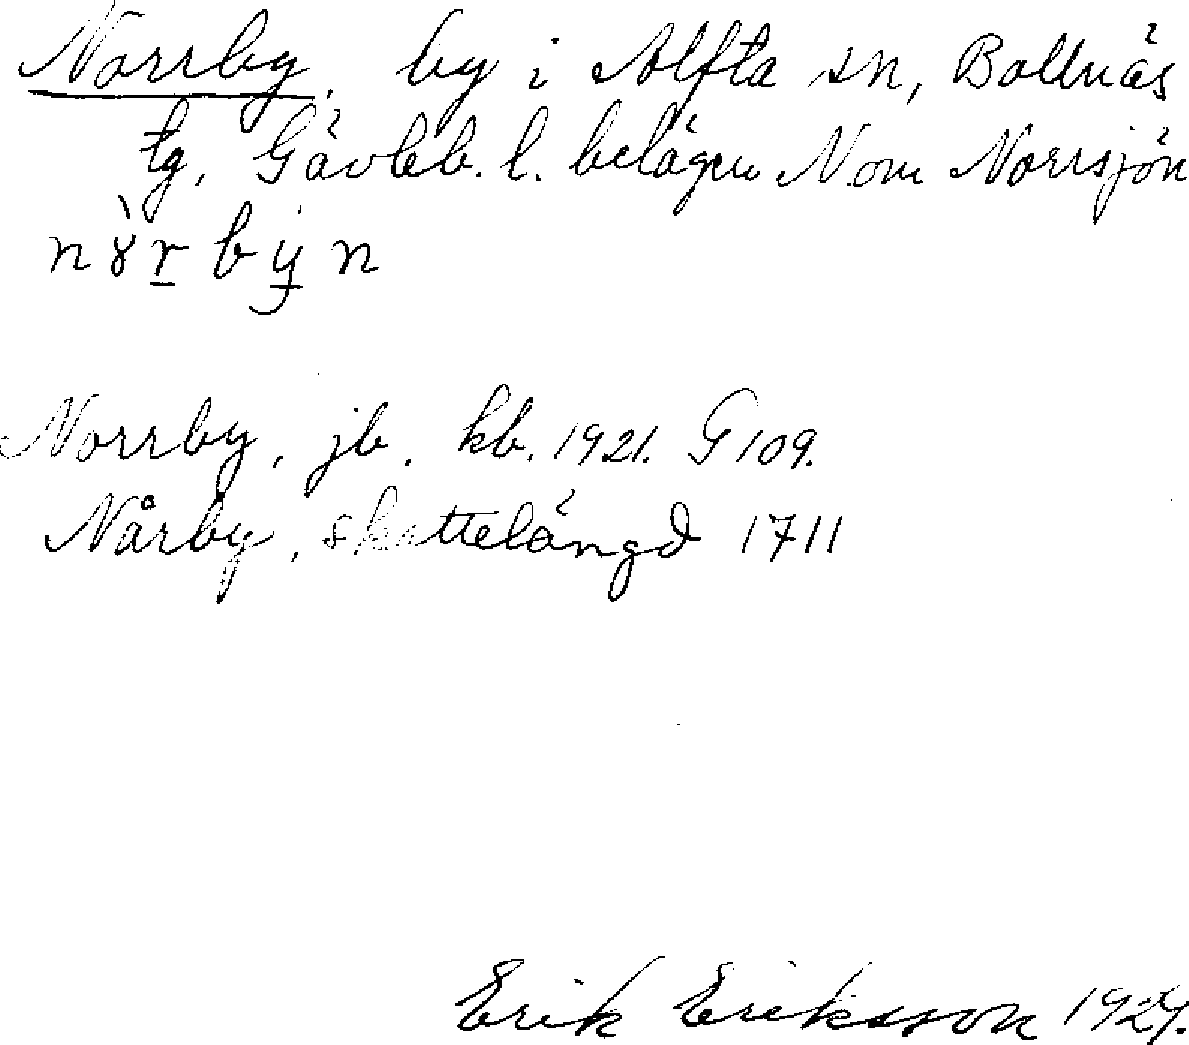 Norrby, by i Alfta sn, Bollnäs
tg, Gävleb. l. belägen N. om Norrsjön
nɤ̀r byn
Norrby, jb. kb. 1921. G 109.
Nårby, skattelängd 1711
Erik Eriksson 1927.